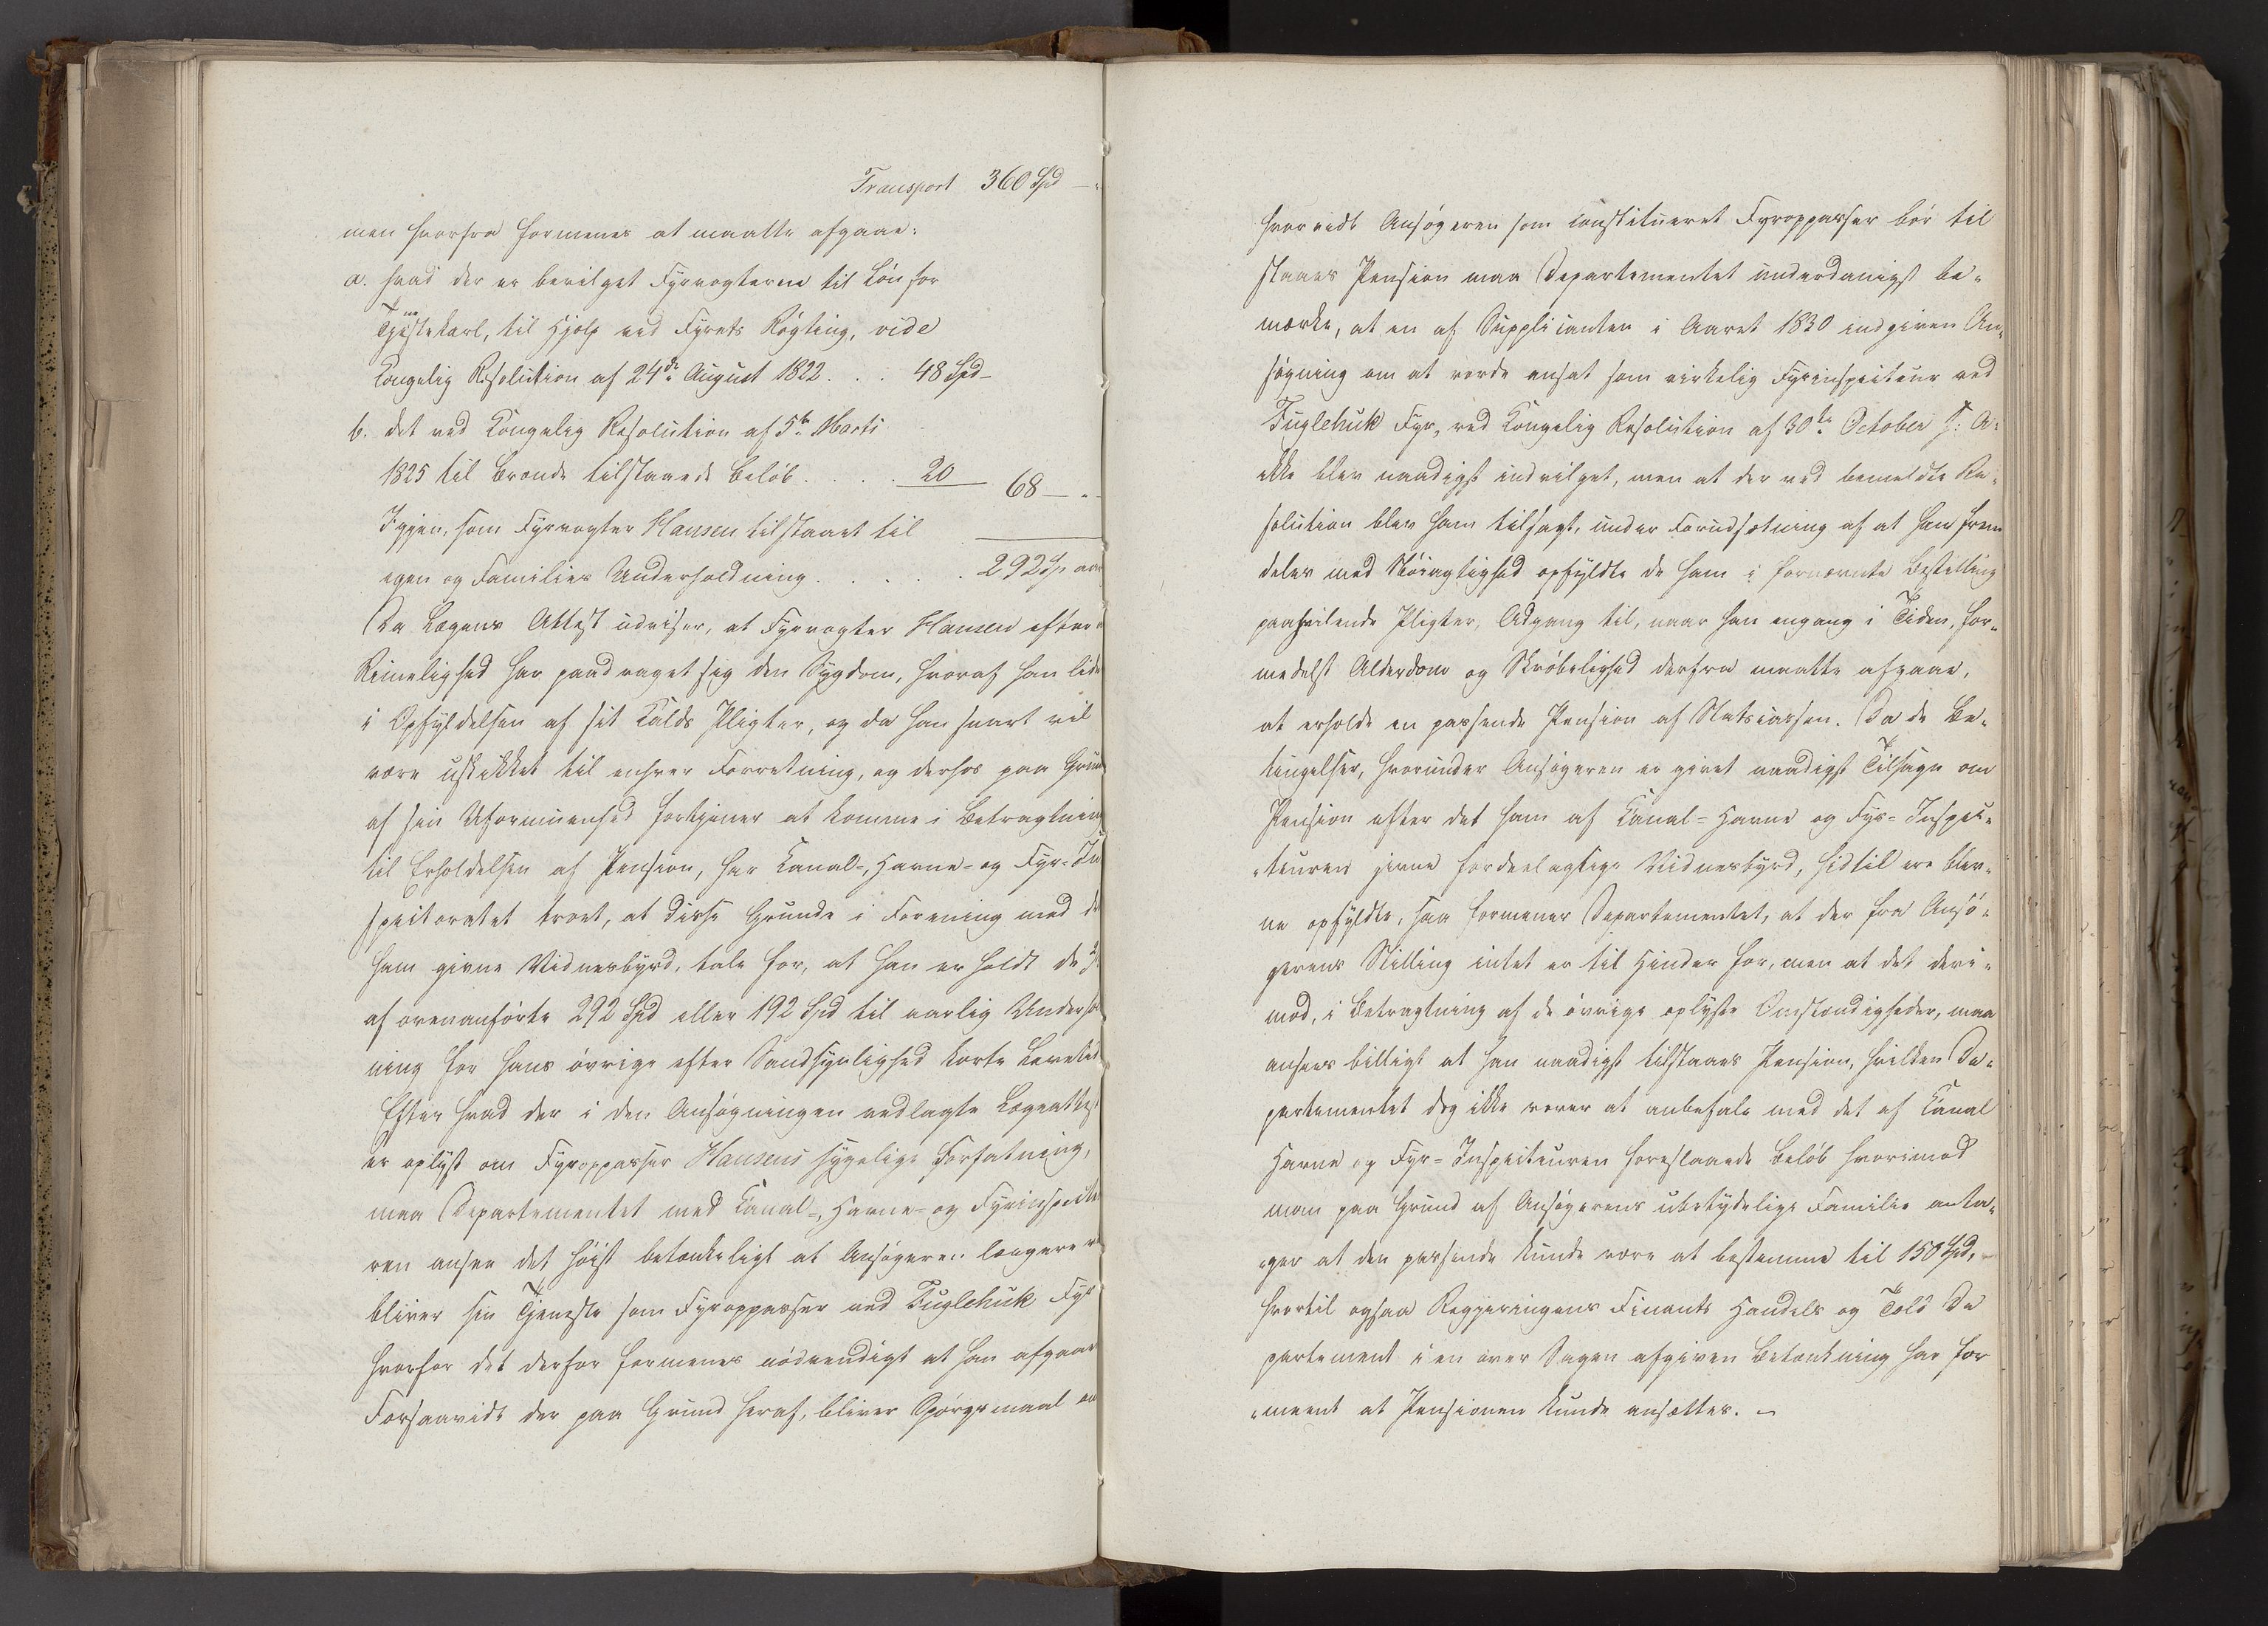 Transport 360 Spd —
men hvorfra formenes at maatte afgaae:
a. hvad der er bevilget Fyrvogterne til Løn for
Tjenestekarl, til Hjelp ved Fyrets Røgting, vide
Kongelig Resolution af 24de August 1822 . . . 48 Spd —
b. det ved Kongelig Resolution af 5te Marts
1825 til Brænde tilstaaede Beløb . . . . 20 68 — "
Igjen, som Fyrvogter Hansen tilstaaet til
egen og Families Underholdning . . . . . 292 Sp
Da Lægens Attest udviser, at Fyrvogter Hansen efter
Rimelighed har paadraget sig den Sygdom, hvoraf han lide
i Opfyldelsen af sit Kalds Pligter, og da han snart vil
være uskikket til enhver Forretning, og derhos paa Grun
af sin Uformuenhed fortjener at komme i Betragtning
til Erholdelsen af Pension, har Canal-, Havne- og Fyr-In
spectoratet troet, at disse Grunde i Forening med de
ham givne Vidnesbyrd, tale for, at han erholdt de
af ovenanførte 292 Spd eller 192 Spd til aarlig Underhol
ning for hans øvrige efter Sandsynlighed korte Levetid
Efter hvad der i den Ansøgningen vedlagte Lægeattest
er oplyst om Fyropasser Hansens sygelige Forfatning,
maa Departementet med Canal-, Havne- og Fyrinspecteu
ren ansee det høist betænkeligt at Ansøgeren længere
bliver sin Tjeneste som Fyropasser ved Fuglehuk Fyr
hvorfor det derfor formenes nødvendigt at han afgaaer
Forsaavidt der paa Grund heraf, bliver Spørgsmaal om
hvorvidt Ansøgeren som constitueret Fyropasser bør til
staaes Pension maa Departementet underdanigst be-
mærke, at en af Supplicanten i Aaret 1830 indgiven An-
søgning om at vorde ansat som virkelig Fyrinspecteur ved
Fuglehuk Fyr, ved Kongelig Resolution af 30te October s: A:
ikke blev naadigst indvilget, men at der ved bemeldte Re-
solution blev ham tilsagt, under Forudsætning af at han frem
deles med Nøiagtighed opfyldte de ham i fornævnte Bestilling
paahvilende Pligter, Adgang til, naar han engang i Tiden, for-
medelst Alderdom og Skrøbelighed derfra maatte afgaae,
at erholde en passende Pension af Statscassen. Da de Be-
tingelser, hvorunder Ansøgeren er givet naadigst Tilsagn om
Pension efter det ham af Canal- Havne og Fyr- Inspec-
-teuren givne fordeelagtige Vidnesbyrd, hidtil ere blev-
ne opfyldte, saa formener Departementet, at der fra Ansø-
gerens Stilling intet er til Hinder for, men at det deri-
mod, i Betragtning af de øvrige oplyste Omstændigheder, maa
ansees billigt at han naadigst tilstaaes Pension, hvilken De-
partementet dog ikke vover at anbefale med det af Canal
Havne og Fyr- Inspecteuren foreslaaede Beløb hvorimod
man paa Grund af Ansøgerens ubetydelige Familie anta-
-ger at den passende kunde være at bestemme til 150 Spd,
hvortil ogsaa Regjeringens Finants Handels og Told De
partement i en over Sagen afgiven Betænkning har for
-meent at Pensionen kunde ansættes. —